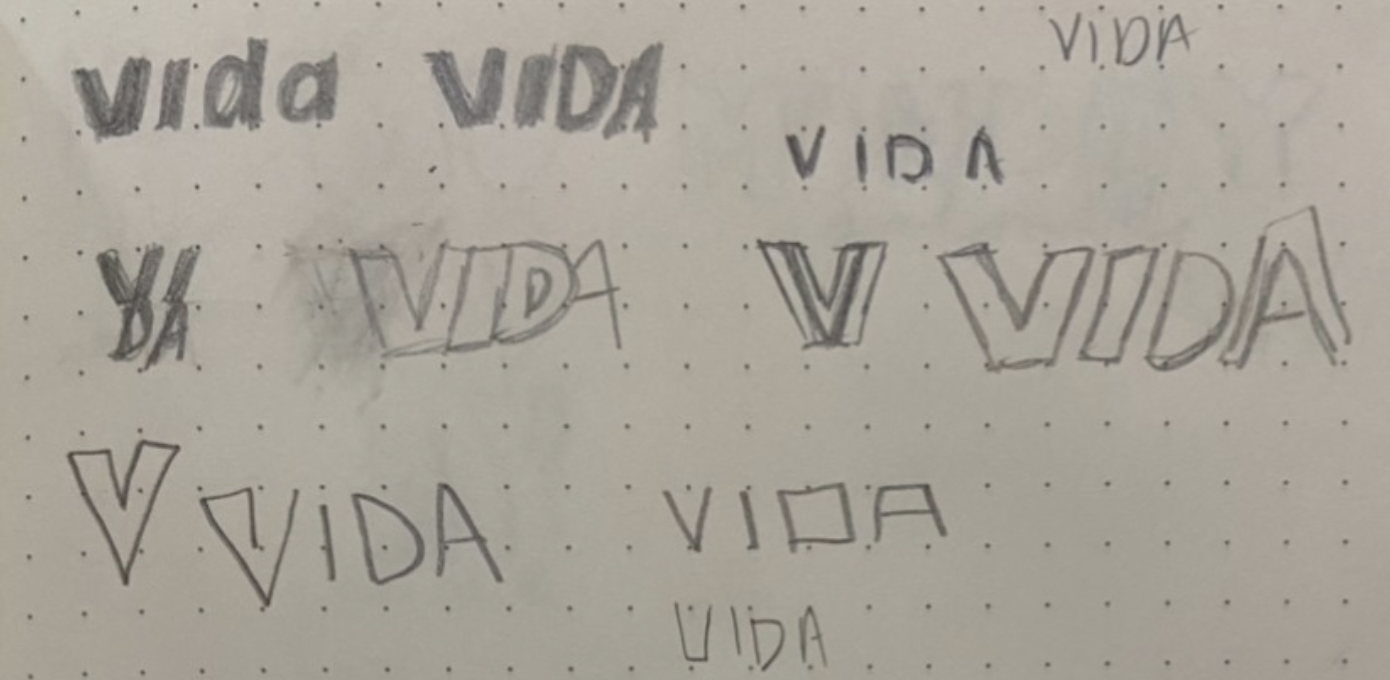 vida VIDA VIDA
VIDA
VI VIDA V VIDA
DA
V VIDA VIDA
VIDA